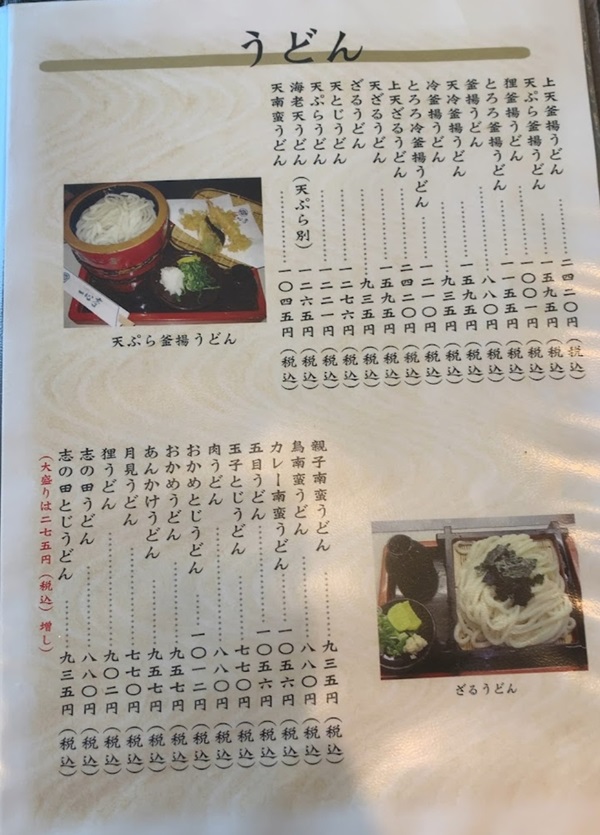 うどん
上天釜揚うどん……二四二〇円(税込)
天ぷら釜揚うどん……一五九五円(税込)
狸釜揚うどん……一〇〇一円(税込)
とろろ釜揚うどん……一一五五円(税込)
釜揚うどん……八八〇円(税込)
天冷釜揚うどん……一五九五円(税込)
冷釜揚うどん……九三五円(税込)
とろろ冷釜揚うどん……一二一〇円(税込)
上天ざるうどん……二四二〇円(税込)
天ざるうどん……一五九五円(税込)
ざるうどん……九三五円(税込)
天とじうどん……一二七六円(税込)
天ぷらうどん……一二二一円(税込)
海老天うどん(天ぷら別)……一二六五円(税込)
天南蛮うどん……一〇四五円(税込)
天ぷら釜揚うどん
親子南蛮うどん……九三五円(税込)
鳥南蛮うどん……八八〇円(税込)
カレー南蛮うどん……一〇五六円(税込)
五目うどん……一〇五六円(税込)
玉子とじうどん……七七〇円(税込)
肉うどん……八八〇円(税込)
おかめとじうどん……一〇一二円(税込)
おかめうどん……九五七円(税込)
あんかけうどん……九五七円(税込)
月見うどん……七七〇円(税込)
狸うどん……九〇二円(税込)
志の田うどん……八八〇円(税込)
志の田とじうどん……九三五円(税込)
(大盛りは二七五円(税込)増し)
ざるうどん